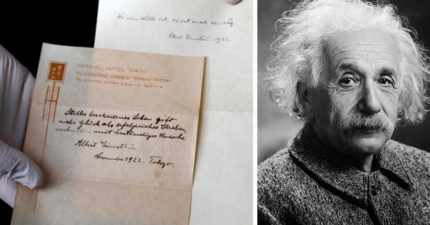 Wo ein Wille ist, da ist auch ein Weg
Albert Einstein 1922.
IMPERIAL HOTEL, TOKYO
TELEGRAPHIC ADDRESS TOKYO
TELEPHONE
Stilles bescheidenes Leben gibt
mehr Glück als erfolgreiches Streben,
verbunden mit beständiger Unruhe.
Albert Einstein
November 1922. Tokyo.